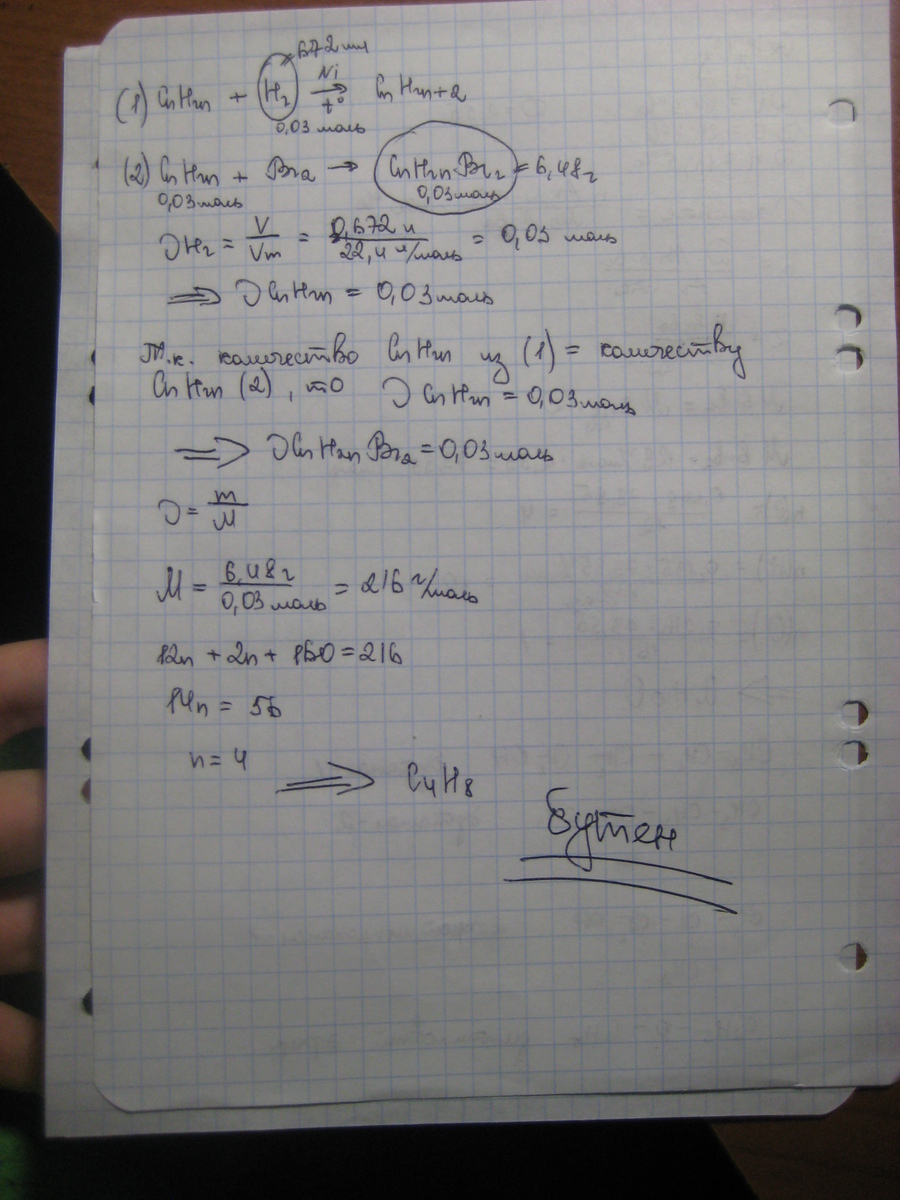 672 мл
(1) CnH2n + H2 Ni t° CnH2n+2
0,03 моль
(2) CnH2n + Br2 → CnH2nBr2 = 6,48г
0,03 моль 0,03 моль
υH2 = V/Vm = 0,672 л / 22,4 л/моль = 0,03 моль
⟹ υCnH2n = 0,03 моль
Т.к. количество CnH2n из (1) = количеству
CnH2n (2), то υ CnH2n = 0,03 моль
⟹ υCnH2nBr2 = 0,03 моль
υ = m/M
M = 6,48г / 0,03 моль = 216 г/моль
12n + 2n + 160 = 216
14n = 56
n = 4
⟹ C4H8
бутен